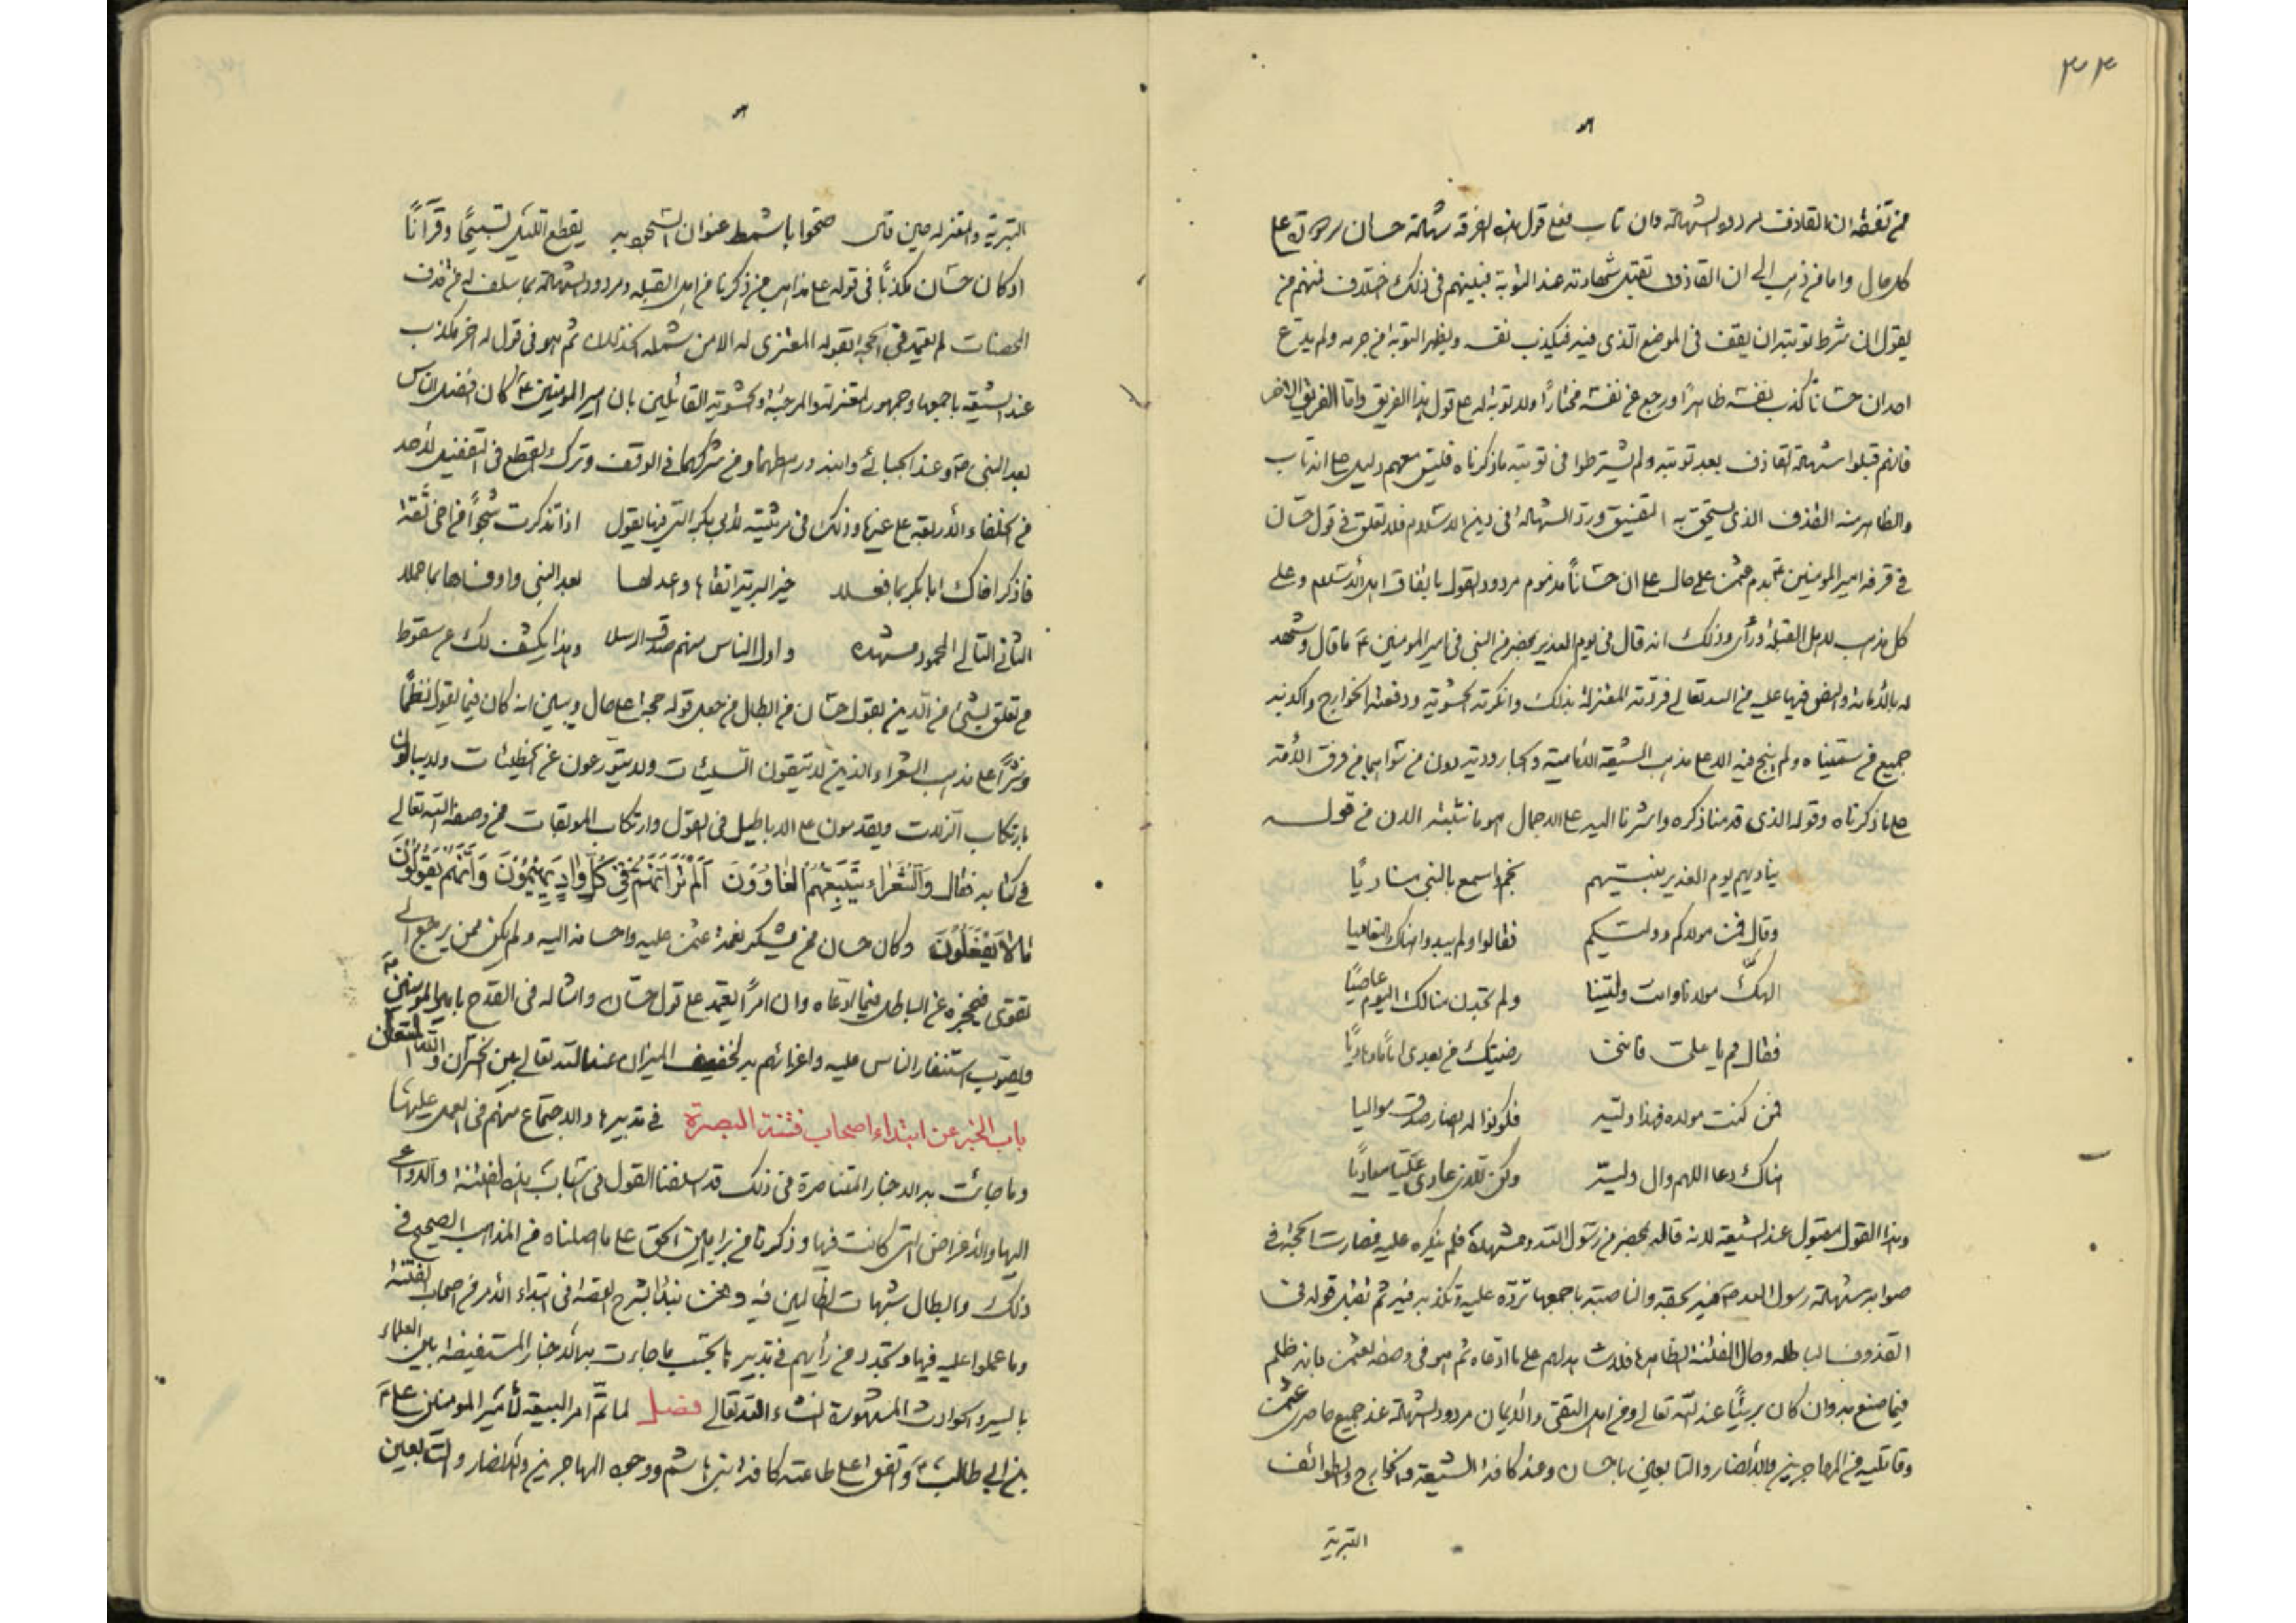 ٣٤
من تفقه ان القاذف مردود الشهادة وان تاب فعلى قول هذه الفرقة شهادة حسان مردودة على
كل حال واما من ذهب الى ان القاذف تقبل شهادته عند التوبة فبينهم فى ذلك اختلاف فمنهم من
يقول ان شرط توبته ان يقف فى الموضع الذى قذف فيه فيكذب نفسه ويظهر التوبة من جرمه ولم يدع
احد ان حسانا كذب نفسه ظاهرًا ورجع عن نفسه مختارًا ولا توبة له على قول هذا الفريق واما الفريق الاخر
فانهم قبلوا شهادة القاذف بعد توبته ولم يشترطوا فى توبته ما ذكرناه فليس معهم دليل على انه تاب
والظاهر منه القذف الذى يستحق به التفسيق ورد الشهادة فى دين الاسلام فلا تعلق فى قول حسان
فى قرفه امير المؤمنين بدم عثمن على حال على ان حسانًا مذموم مردود القول باتفاق اهل الاسلام وعلى
كل مذهب لاهل القبلة ورأى وذلك انه قال فى يوم الغدير بمحضر من النبى فى امير المومنين ع ما قال وشهد
له بالامامة والنص فيها عليه من الله تعالى فردته المعتزلة بذلك وانكرته الحشوية ودفعته الخوارج واكذبه
جميع من سميناه ولم ينج منه الا على مذهب الشيعة الامامية والجارودية دون من سواهما من فرق الأمة
على ما ذكرناه وقوله الذى قدمنا ذكره واشرنا اليه على الاجمال هو ما نثبته الان من قوله
يناديهم يوم الغدير نبيهم بخم واسمع بالنبى مناديًا
وقال فمن مولاكم ووليكم فقالوا ولم يبدوا هناك التعاميا
الهك مولانا وانت ولينا ولم تجدن منا لك اليوم عاصيًا
فقال قم يا على فاننى رضيتك من بعدى امامًا وهاديًا
فمن كنت مولاه فهذا وليه فكونوا له انصار صدق مواليا
هناك دعا اللهم وال وليه وكن للذى عادى عليًا معاديًا
وهذا القول مقبول عند الشيعة لانه قاله بمحضر من رسول الله ومشهده فلم ينكره عليه فصارت الحجة فى
صوابه شهادة رسول الله ص فيه بحقه والناصبة باجمعها ترده عليه وتكذبه فيه ثم تقبل قوله فى
القذوف الباطلة وحال الفتنة الظاهرة فلا شاهد لهم على ما ادعاه ثم هو فى وصفه لعثمن بانه ظلم
فيما صنع به وان كان بريئًا عند الله تعالى ومن اهل التقى والأيمان مردود الشهادة عند جميع حاصرى عثمن
وقاتليه من المهاجرين والأنصار والتابعين باحسان وعند كافة الشيعة والخوارج وطوائف
البترية
البترية والمعتزلة حين قال ضحوا باشمط عنوان السجود به يقطع الليل تسبيحًا وقرآنًا
اذ كان حسان مكذبًا فى قوله على مذاهب من ذكرنا من اهل القبلة ومردود الشهادة بما سلف له من قذف
المحصنات لم يعتمد فى الحجة بقوله المفترى له الا من شمله الخذلان ثم هو فى قول له اخر مكذب
عند الشيعة باجمعها وجمهور المعتزلة والمرجئة والحشوية القائلين بان امير المومنين ع كان افضل الناس
بعد النبى ص وعند الجبائى وابنه ورهطهما ومن شركهما فى الوقف وترك القطع فى التفضيل لأحد
من الخلفاء الأربعة على غيره وذلك فى مرثيته لأبى بكر التى فيها يقول اذا تذكرت شجوًا من اخى ثقة
فاذكر اخاك ابا بكر بما فعلا خير البرية اتقاها واعدلها بعد النبى واوفاها بما حملا
الثانى التالى المحمود مشهده واول الناس منهم صدق الرسلا وهذا يكشف لك عن سقوط
من تعلق بشئ من الدين بقول حسان من ابطال من جعل قوله حجة على حال ويبين انه كان فيما يقوله نظمًا
ونثرًا على مذهب الشعراء الذين لا يتقون السيئات ولا يتورعون عن الخطيئات ولا يبالون
بارتكاب الزلات ويقدمون على الاباطيل فى القول وارتكاب الموبقات ممن وصفه الله تعالى
فى كتابه فقال والشعراء يتبعهم الغاوون الم تر انهم فى كل واد يهيمون وانهم يقولون
ما لا يفعلون وكان حسان ممن يشكر نعمة عثمن عليه واحسانه اليه ولم يكن ممن يرجع الى
تقوى فيحجزه عن الباطل فيما ادعاه وان امرًا يعتمد على قول حسان وامثاله فى القدح بامير المومنين ع
ويصوب استنفار الناس عليه واغرائهم به لخفيف الميزان عند الله تعالى بين الخسران والله المستعان
باب الخبر عن ابتداء اصحاب فتنة البصرة فى تدبيرها والاجتماع منهم فى العمل عليها
وما جائت به الاخبار المتناصرة فى ذلك قد اسلفنا القول فى اسباب هذه الفتنة والدواعى
اليها والأغراض التى كانت فيها وذكرنا من براهين الحق على ما اصلناه من المذاهب الصحيح فى
ذلك وابطال شبهات الظالمين فيه ونحن نبدأ بشرح القصة فى ابتداء الأمر من اصحاب الفتنة
وما عملوا عليه فيها وتجدد من رأيهم فى تدبيرها بحسب ما جاءت به الأخبار المستفيضة بين العلماء
بالسير والحوادث المشهورة انشاء الله تعالى فصل لما تم امر البيعة لأمير المومنين على
بن ابى طالب ع واتفق على طاعته كافة بنى هاشم ووجوه المهاجرين والانصار والتابعين